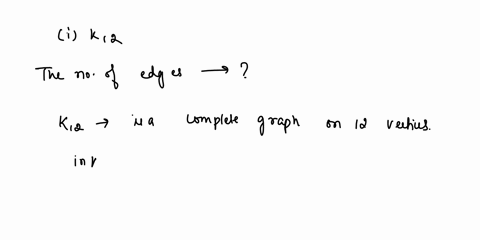 (i) K12
The no. of edges → ?
K12 → is a complete graph on 12 vertius.
in